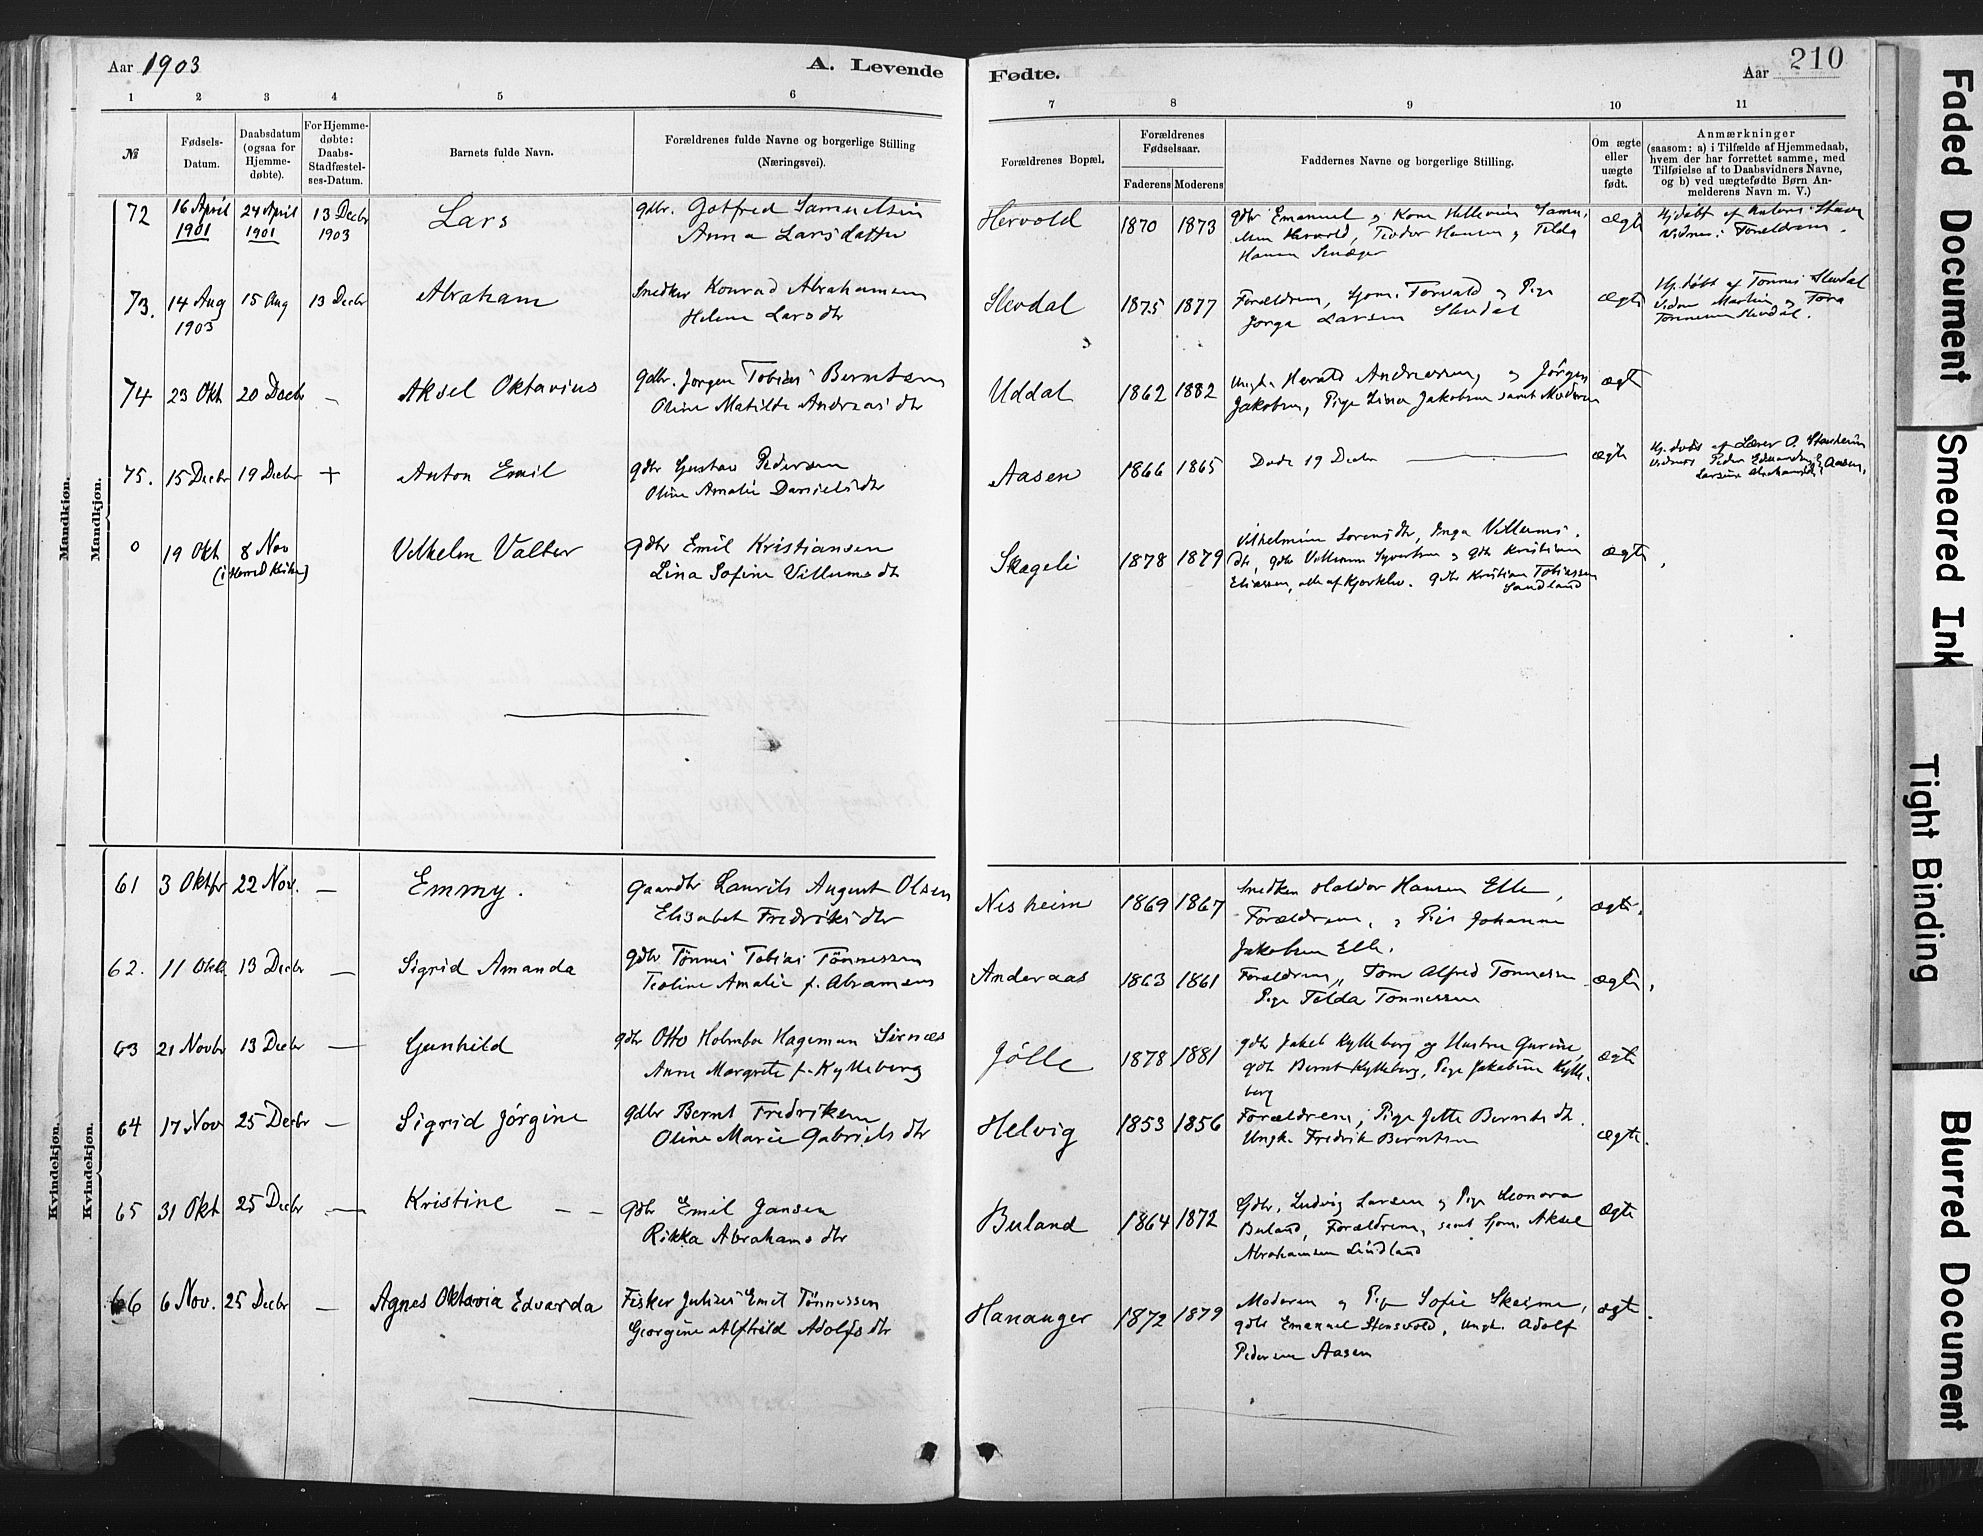 Aar 1903
A. Levende
Fødte.
Aar
210
1 2 3 4 5 6
7 8 9 10 11
№
Fødsels-
Datum.
Daabsdatum
(ogsaa for
Hjemme-
døbte).
For Hjemme-
døbte:
Daabs-
Stadfæstel-
ses-Datum.
Barnets fulde Navn.
Forældrenes fulde Navne og borgerlige Stilling
(Næringsvei).
Forældrenes Bopæl.
Forældrenes
Fødselsaar.
Faderens Moderens
Faddernes Navne og borgerlige Stilling.
Om ægte
eller
uægte
født.
Anmærkninger
(saasom: a) i Tilfælde af Hjemmedaab,
hvem der har forrettet samme, med
Tilføielse af to Daabsvidners Navne,
og b) ved uægtefødte Børn An-
melderens Navn m. V.)
Mandkjøn.
Mandkjøn.
72 16 April 24 April 13 Decbr Lars gdbr. Gotfred Samuelsen
1901 1901 1903 Anna Larsdatter
Hervold 1870 1873 gdbr Emanuel
ægte
73. 14 Aug 15 Aug 13 Decbr Abraham Snedker Konrad Abrahamsen
1903 Helene Larsdtr
Slevdal 1875 1877 Forældrene, Torvald og Pige
Larsen Slevdal
ægte
Hj. døbt af Tønnes Slevdal
74 23 Okt 20 Decbr – Aksel Oktavius gdbr. Jørgen Tobias Berntsen
Oline Matilde Andreasdtr
Uddal 1862 1882 Ungk. Herald Andreassen, og Jørgen
Jakobsen, Pige Lina Jakobsen samt Moderen
ægte
75. 15 Decbr 19 Decbr + Anton Emil gdbr Gustav Pedersen
Oline Amalie Danielsdtr
Aasen 1866 1865 Døde 19 Decbr
ægte
Hj. døbt af Lærer O.
Aasen.
0 19 Okt 8 Nov Vilhelm Valter gdbr Emil Kristiansen
Lina Sofine Villumsdtr
Skageli 1878 1879 Vilhelmine Lorensdtr, Inga Villums-
dtr, gdbr Villum Syvertsen og gdbr Kristian
Eliassen, alle af gdbr Kristian Tobiassen
Sandland
ægte
Kvindekjøn.
Kvindekjøn.
61 3 Oktbr 22 Nov. – Emmy. gaardbr Laurits August Olsen
Elisabet Fredriksdtr
Nesheim 1869 1867 Snedker Haldor Hansen Elle,
Forældrene, og Pige Johanne
Jakobsen Elle.
ægte.
62. 11 Okt 13 Decbr – Sigrid Amanda gdbr Tønnes Tobias Tønnessen
Teoline Amalie f. Abramsen
Anderaas 1863 1861 Forældrene, Tom Alfred Tønnessen
Pige Telda Tønnessen
ægte.
63 21 Novbr 13 Decbr – Gunhild gdbr Otto Holmboe Hageman Sirnæs
Anna Margrete f. Kylleberg
Jølle 1878 1881 gdbr Jakob Kylleberg og Hustru Gurine,
gdbr Bernt Kylleberg, Pige Jakobine Kylle-
berg
ægte
64 17 Nov 25 Decbr – Sigrid Jørgine gdbr Bernt Fredriksen
Oline Marie Gabrielsdtr
Helvig 1853 1856 Forældrene, Pige Jette Berntsdtr.
Ungk. Fredrik Berntsen
ægte.
65 31 Okt 25 Decbr – Kristine – – gdbr Emil Jansen
Rikka Abrahamsdtr
Buland 1864 1872 Gdbr. Ludvig Larsen og Pige Leonora
Buland, Forældrene, samt Aksel
Abrahamsen Lindland
ægte
66 6 Nov. 25 Decbr – Agnes Oktavia Edvarda Fisker Julius Emil Tønnessen
Georgine Alfhild Adolfsdtr
Hananger 1872 1879 Moderen og Pige Sofie
gdbr Emanuel Stensvold, Ungk. Adolf
Pedersen Aasen
ægte.
Faded Document
Smeared Ink
Tight Binding
Blurred Document